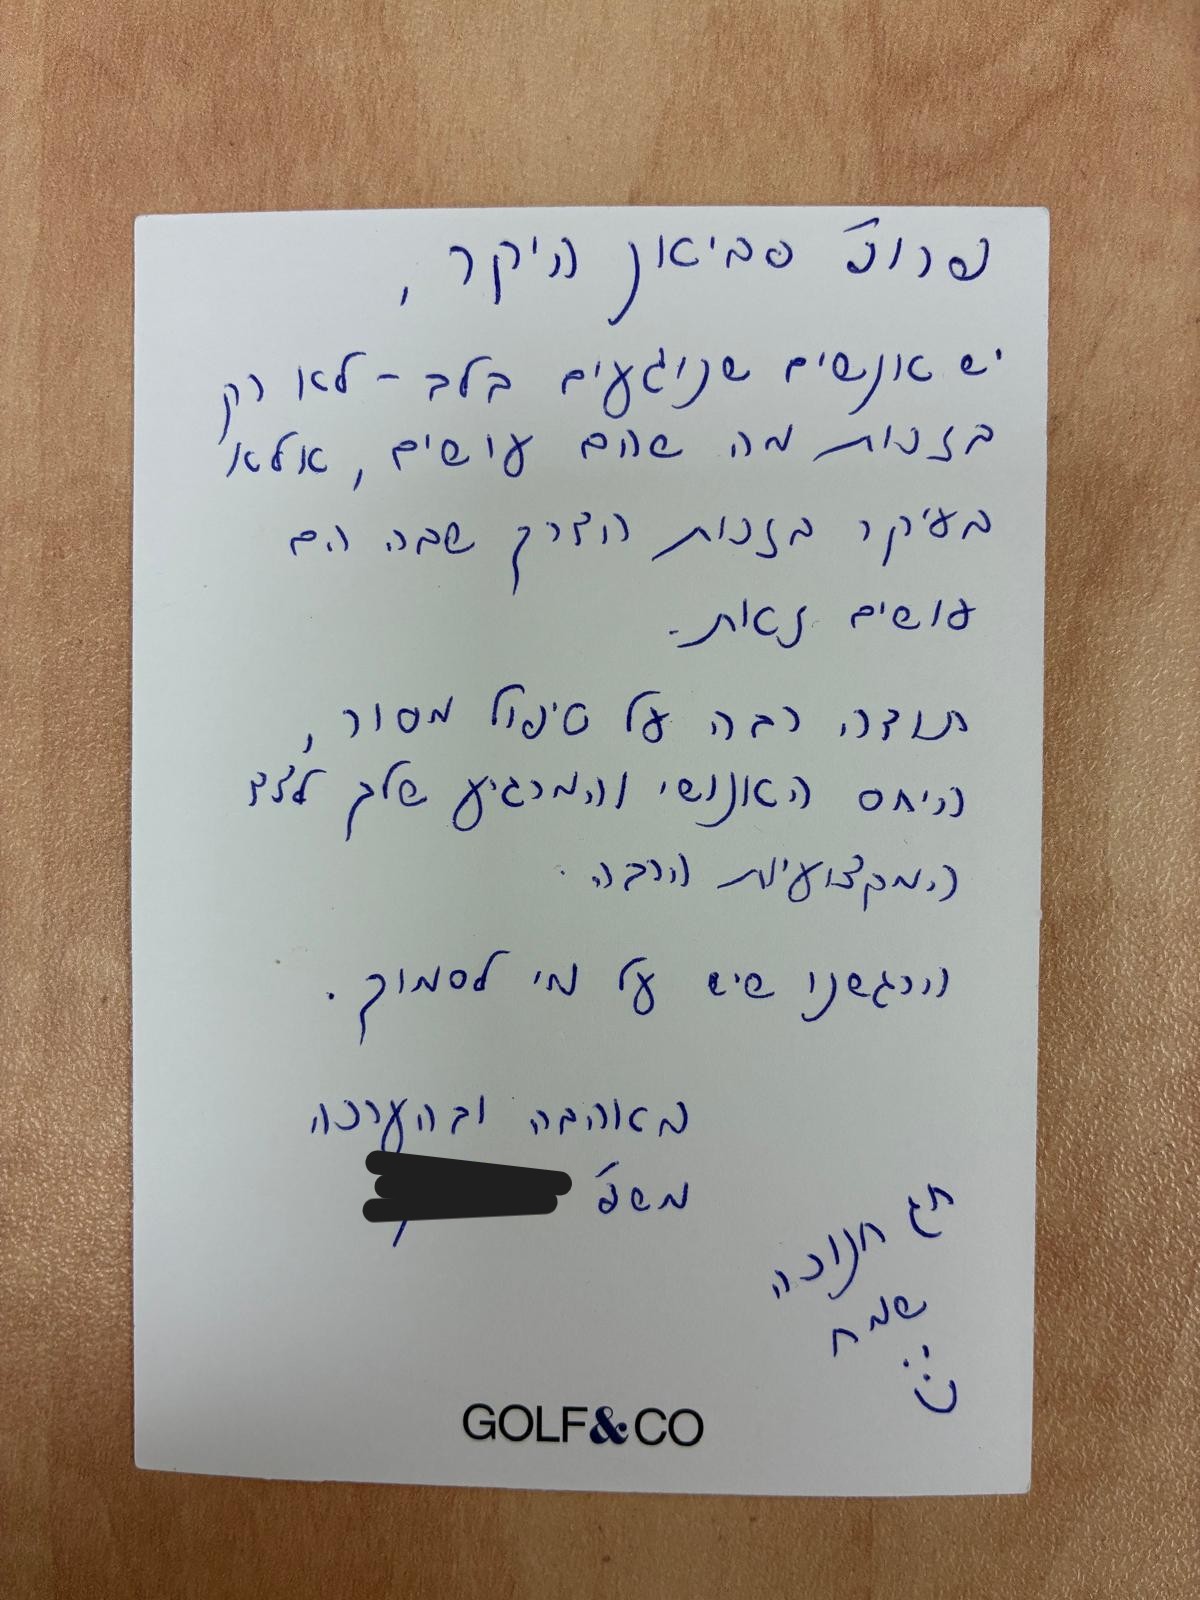 פרופ' סביאן היקר,
יש אנשים שנוגעים בלב - לא רק
בזכות מה שהם עושים, אלא
בעיקר בזכות הדרך שבה הם
עושים זאת.
תודה רבה על טיפול מסור,
היחס האנושי והמרגיע שלך לצד
המקצועיות הרבה.
הרגשנו שיש על מי לסמוך.
באהבה ובהערכה
משפ'
חג חנוכה
שמח
:)
GOLF&CO